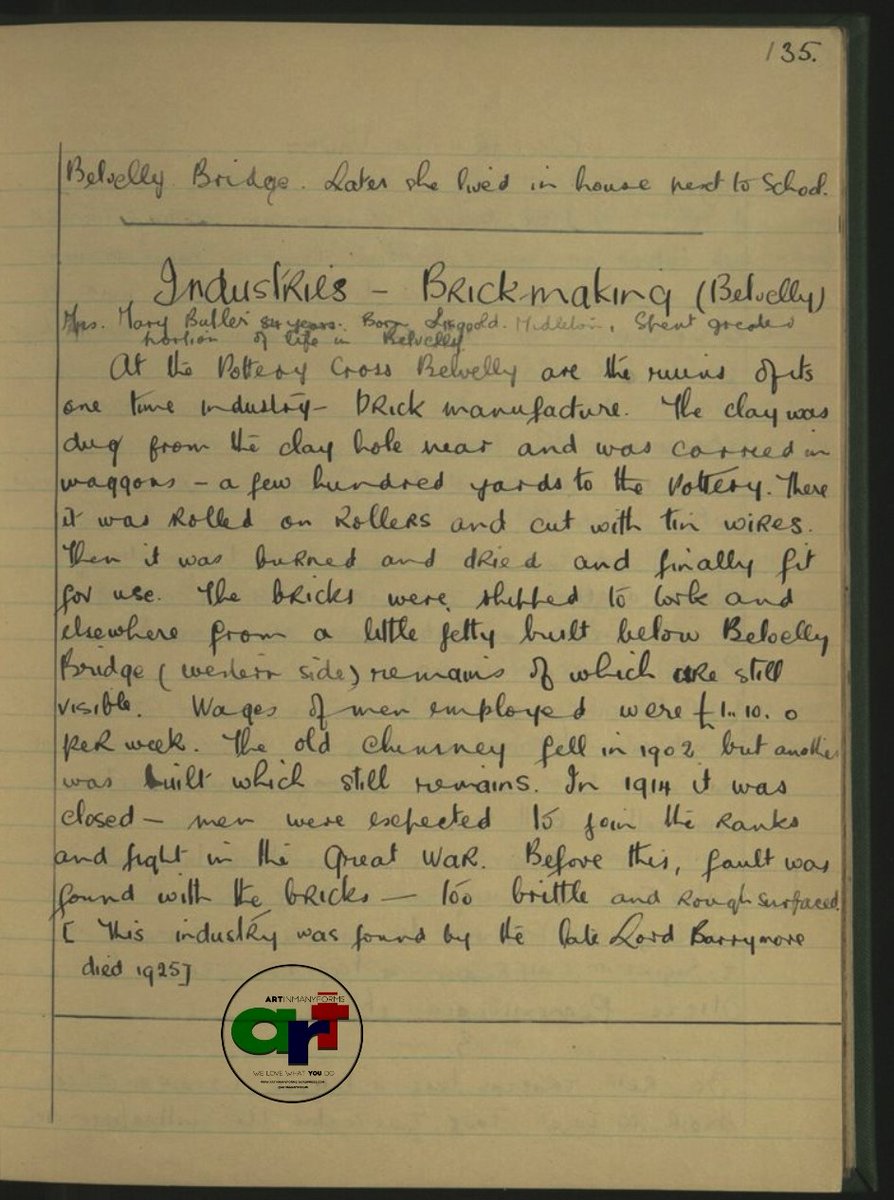 135.
Belvelly Bridge. Later she lived in house next to School.
Industries - Brickmaking (Belvelly)
Mrs. Mary Butler 84 years. Born Lisgoold. Midleton, Spent greater
portion of life in Belvelly
At the Pottery Cross Belvelly are the ruins of its
one time industry - brick manufacture. The clay was
dug from the clay hole near and was carried in
waggons - a few hundred yards to the Pottery. There
it was rolled on rollers and cut with tin wires.
Then it was burned and dried and finally fit
for use. The bricks were shipped to Cork and
elsewhere from a little jetty built below Belvelly
Bridge (western side) remains of which are still
visible. Wages of men employed were £1. 10. 0
per week. The old chimney fell in 1902 but another
was built which still remains. In 1914 it was
closed - men were expected to join the ranks
and fight in the Great War. Before this, fault was
found with the bricks - too brittle and rough surfaced.
[ This industry was found by the late Lord Barrymore
died 1925]
ARTINMANYFORMS
art
WE LOVE WHAT YOU DO